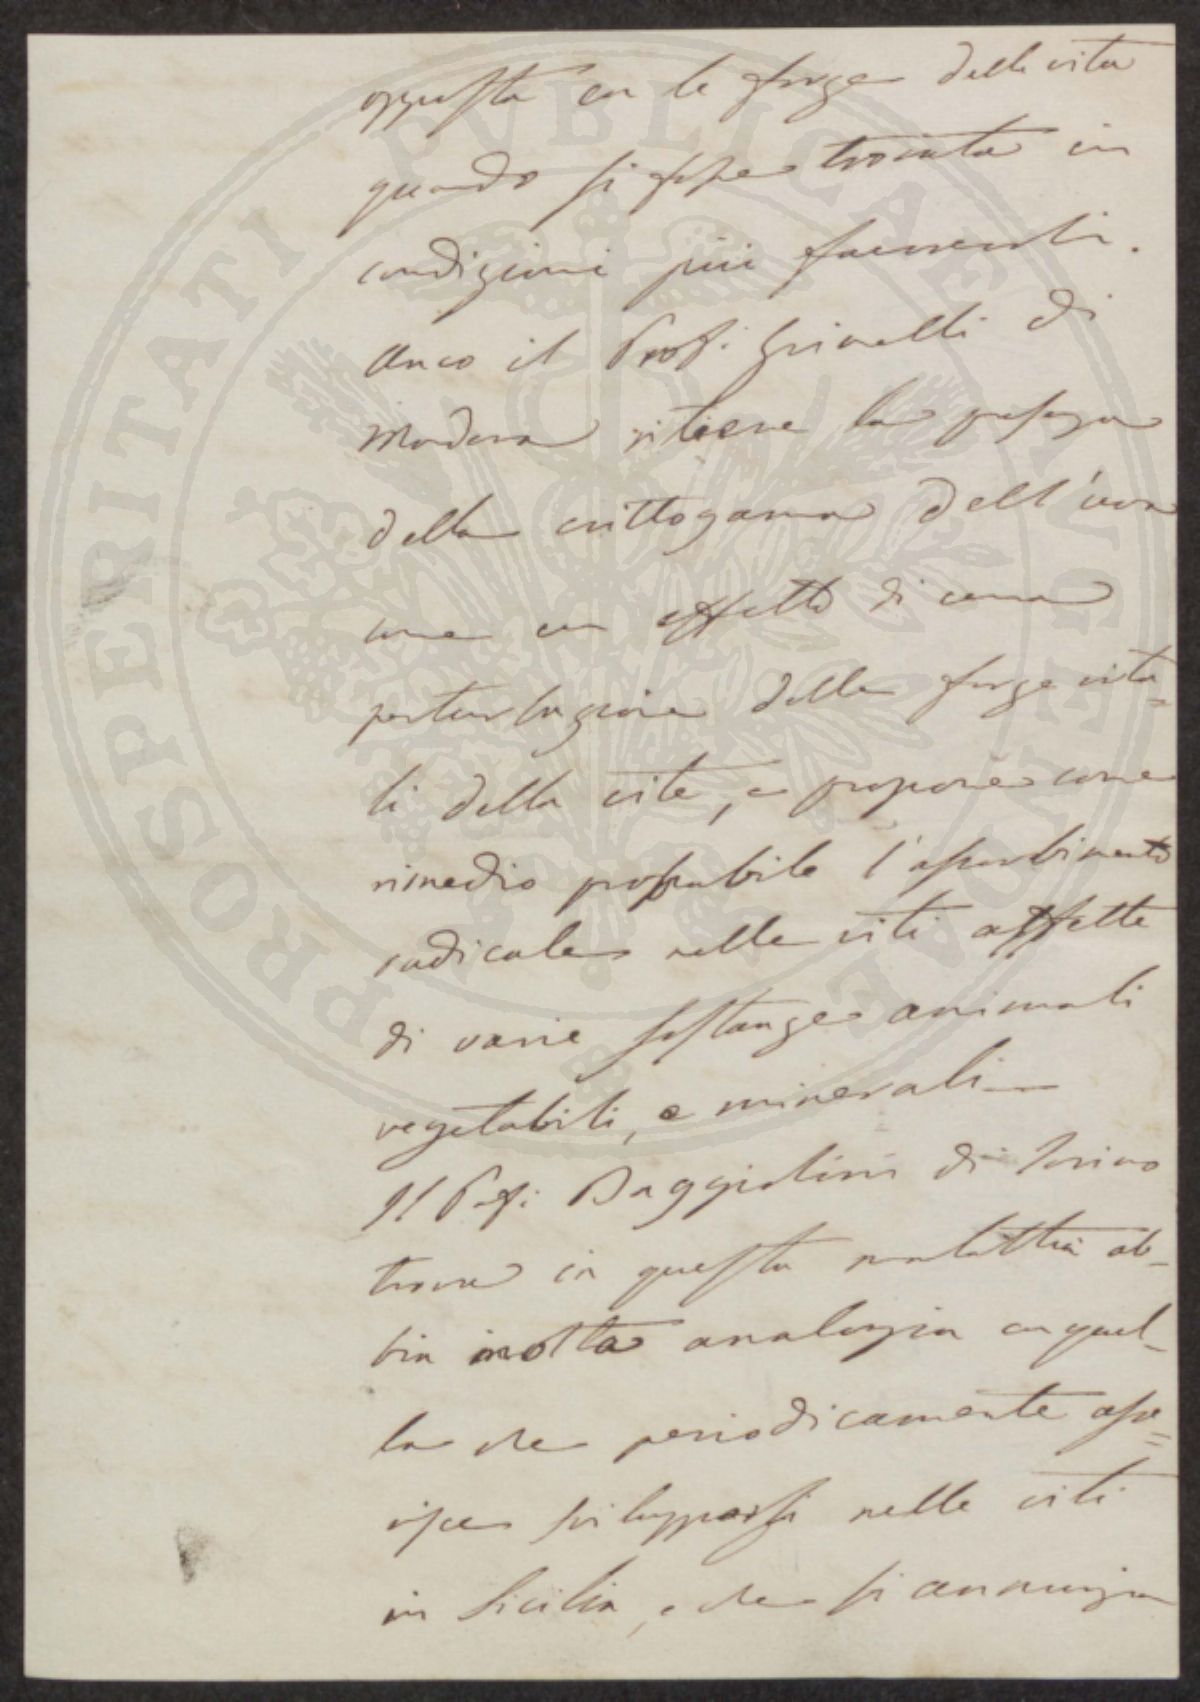 opposta con le forze della vita
quando si fosse trovata in
condizioni più favorevoli.
Anco il Prof. Grimelli di
Modena ritiene la presenza
della crittogama dell'uva
come un effetto di una
perturbazione delle forze vita=
li della vite, e propone come
rimedio probabile l'assorbimento
radicale nelle viti affette
di varie sostanze animali
vegetabili, e minerali
Il Prof. Baggiolini di Torino
trova in questa malattia ab=
bia molta analogia con quel=
la che periodicamente
svilupparsi nelle viti
in Sicilia, e che si annunzia
PROSPERITATI PVBLICAE AVGENDAE